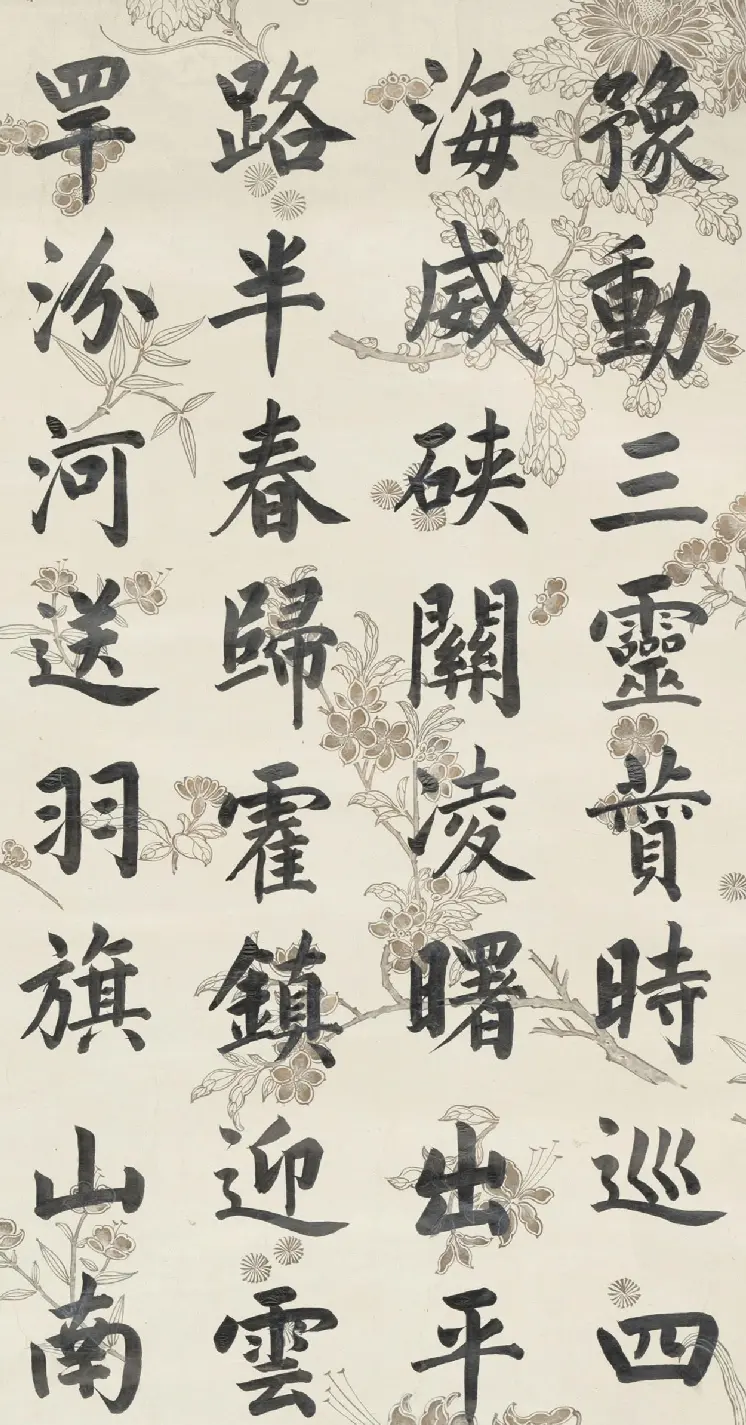 豫動三靈賛時巡四
海威硤關凌曙出平
路半春歸霍鎮迎雲
罕汾河送羽旗山南